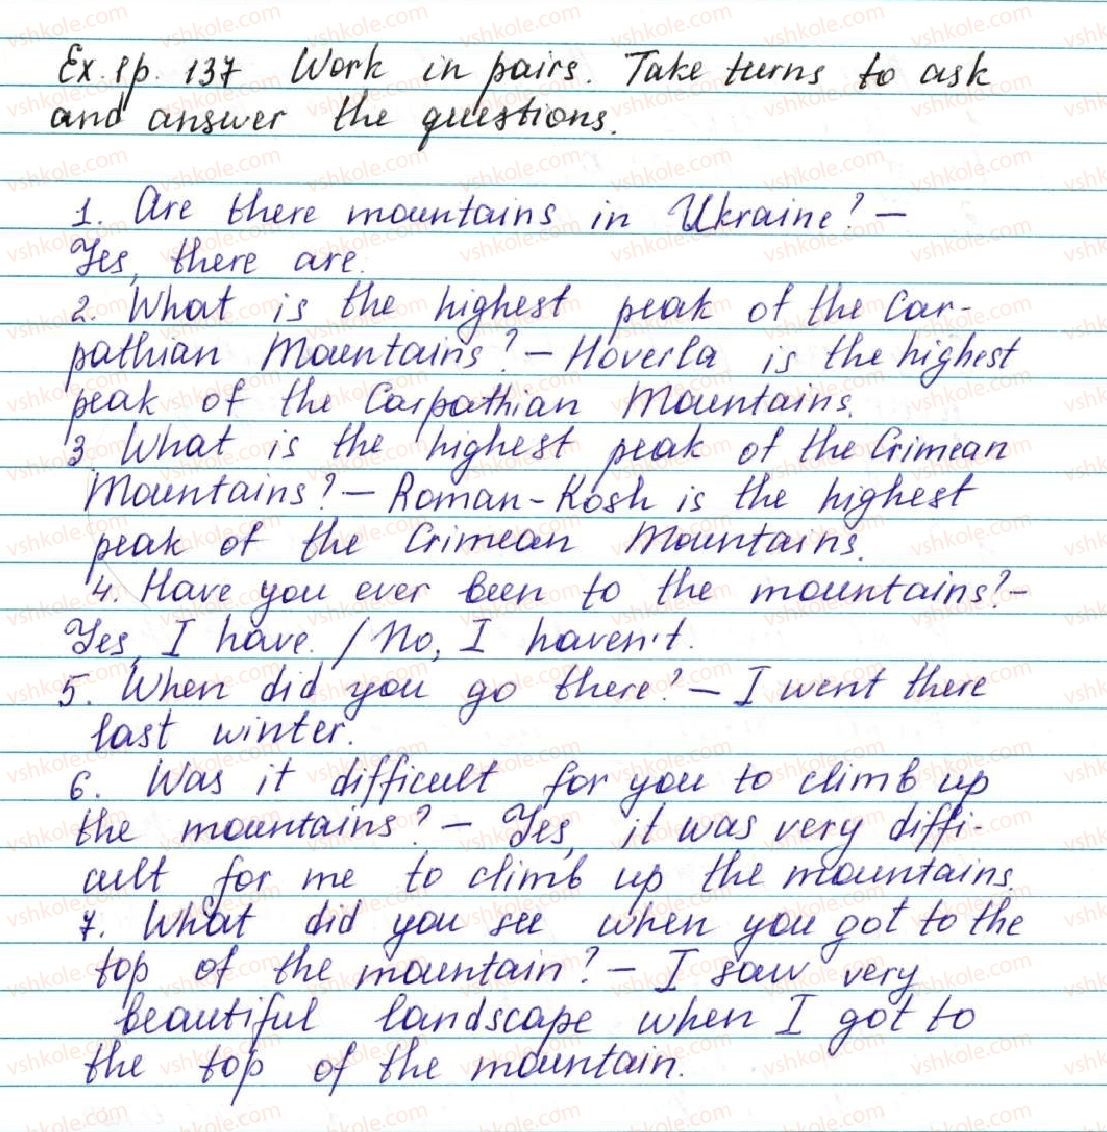 Ex. 1 p. 137 Work in pairs. Take turns to ask
and answer the questions.
1. Are there mountains in Ukraine? –
Yes, there are.
2. What is the highest peak of the Car-
pathian Mountains? – Hoverla is the highest
peak of the Carpathian Mountains.
3. What is the highest peak of the Crimean
Mountains? – Roman-Kosh is the highest
peak of the Crimean Mountains.
4. Have you ever been to the mountains? –
Yes, I have. / No, I haven't.
5. When did you go there? – I went there
last winter.
6. Was it difficult for you to climb up
the mountains? – Yes, it was very diffi-
cult for me to climb up the mountains.
7. What did you see when you got to the
top of the mountain? – I saw very
beautiful landscape when I got to
the top of the mountain.